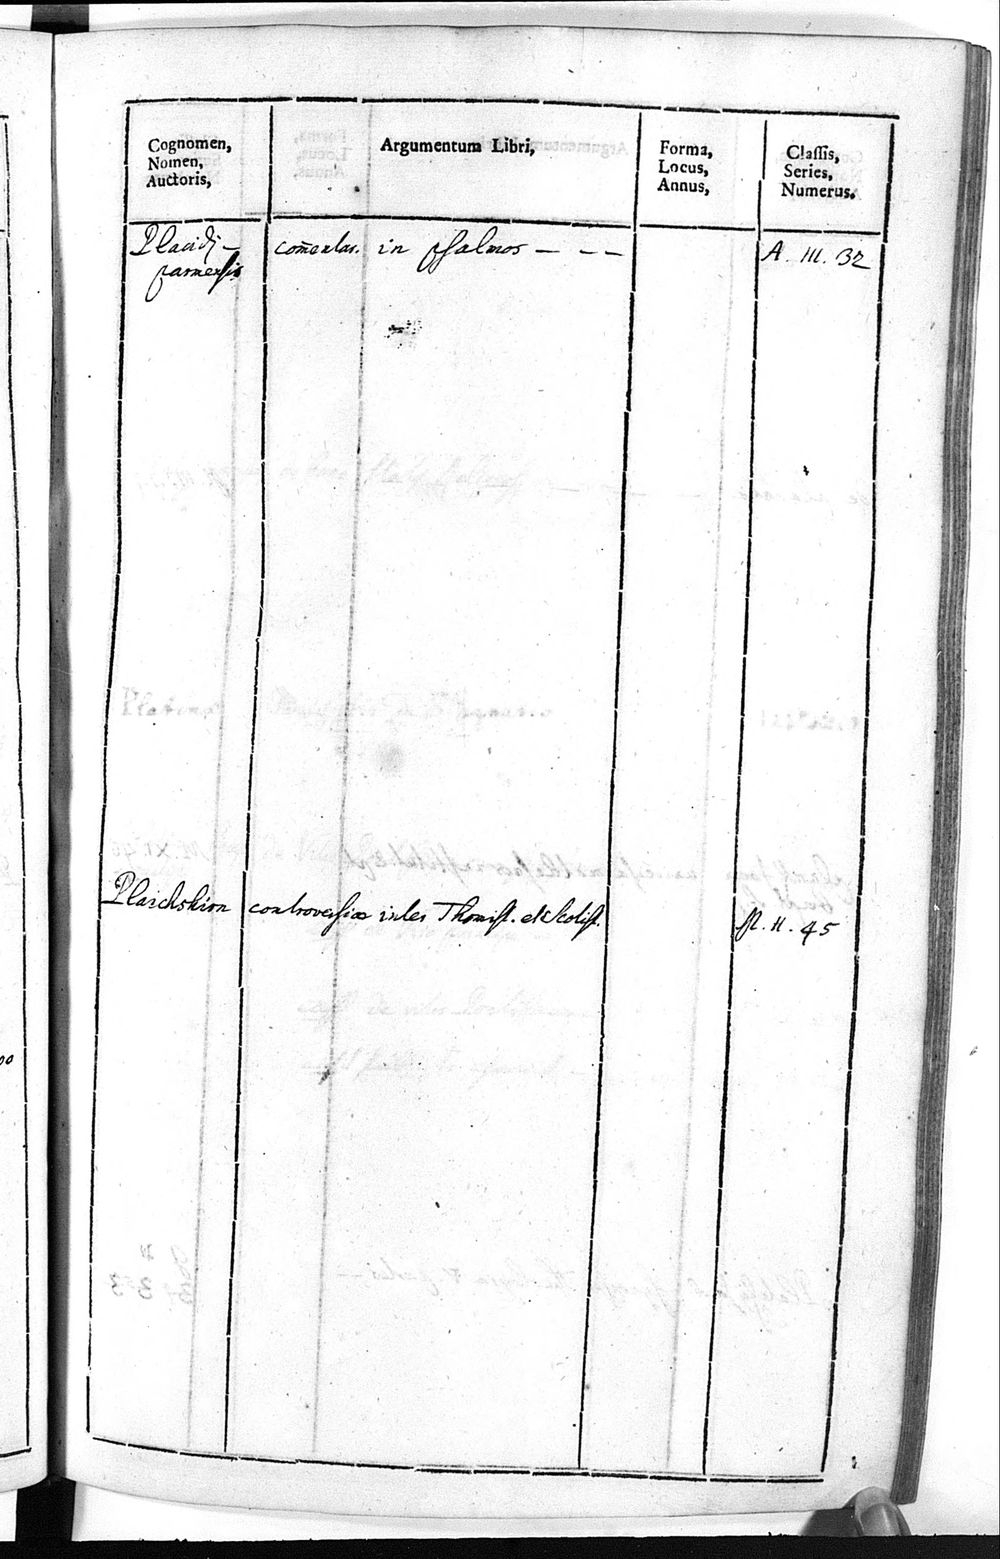 Cognomen,
Nomen,
Auctoris,
Argumentum Libri,
Forma,
Locus,
Annus,
Classis,
Series,
Numerus.
Placidi –
parmensis
com̄entar. in psalmos – – –
A. III. 32
Plaichshirn
controversiæ inter Thomist. et Scotist.
II. 45